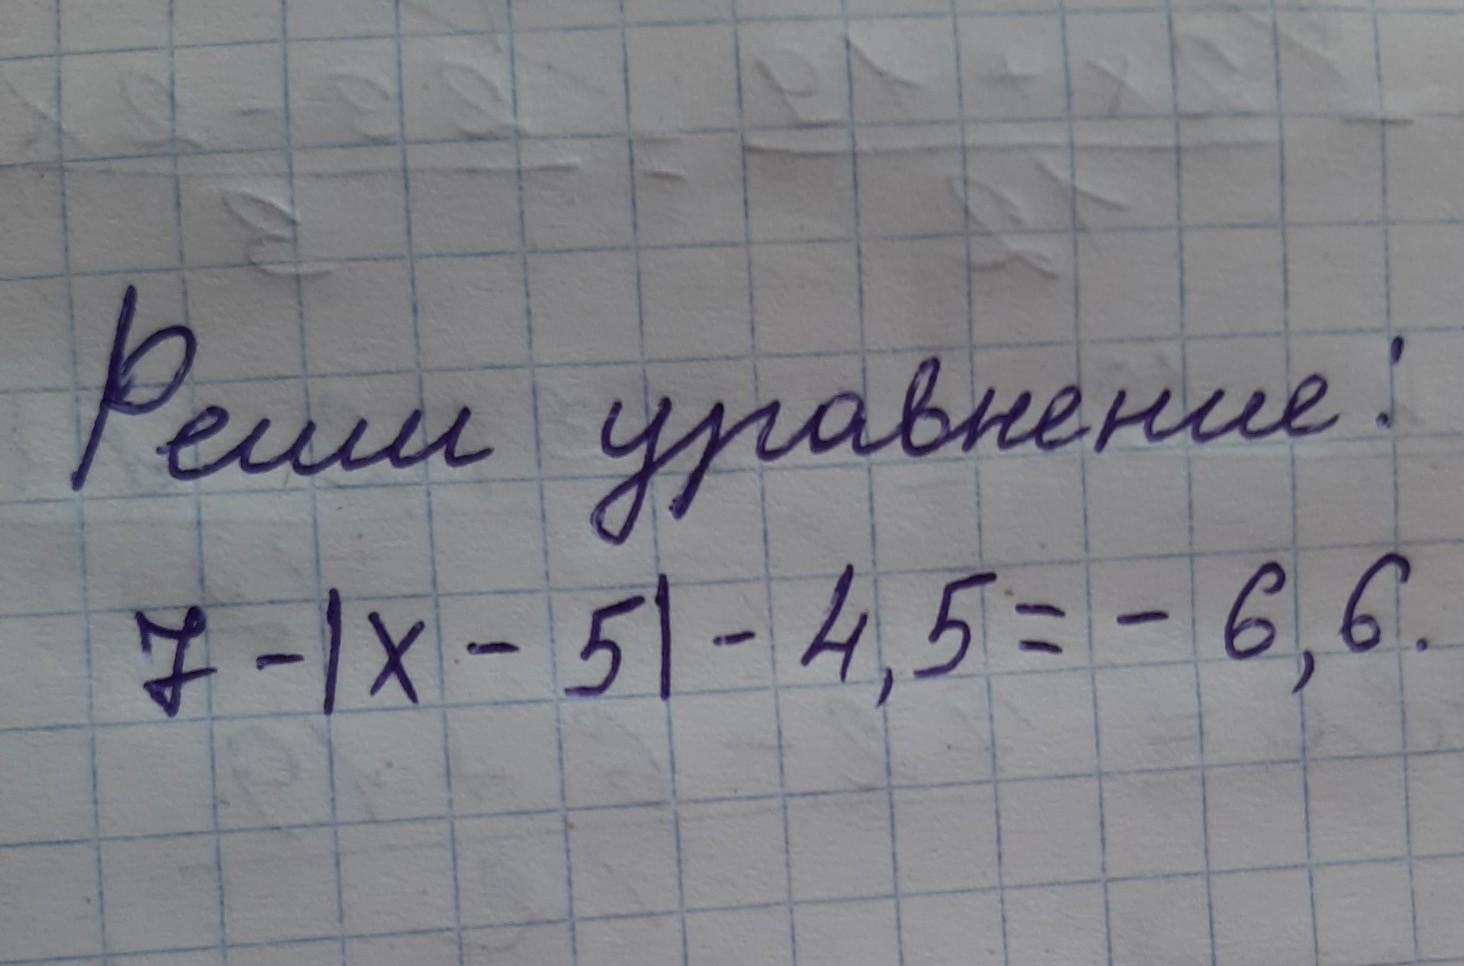 Реши уравнение:
7 - |x - 5| - 4,5 = - 6,6.